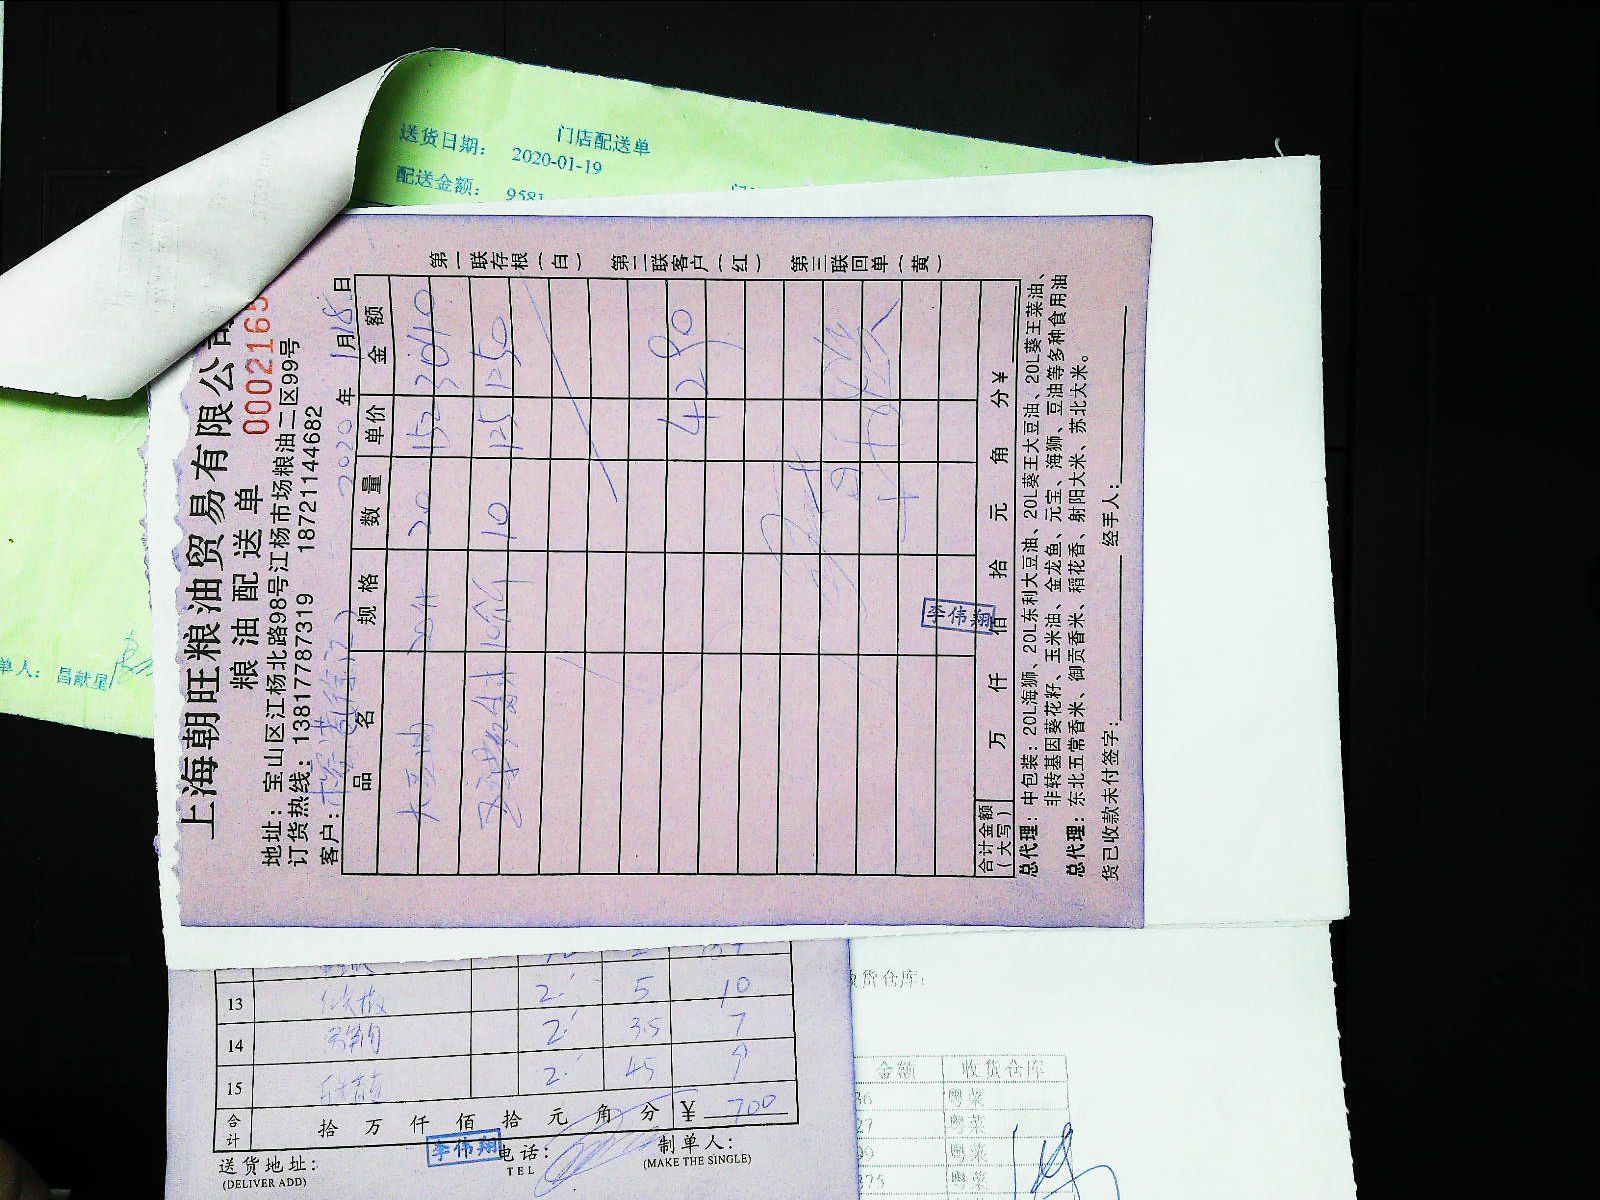 门店配送单
送货日期： 2020-01-19
配送金额： 9581
单人： 昌献星
上海朝旺粮油贸易有限公司
粮油配送单
0002165
地址：宝山区江杨北路98号江杨市场粮油二区99号
订货热线：13817787319 18721144682
客户：
2020 年 1月18日
品名 规格 数量 单价 金额
大豆油 20 152 3040
10 125 1250
4290
合计金额（大写） 万 仟 佰 拾 元 角 分 ¥
李伟翔
总代理：中包装：20L海狮、20L东利大豆油、20L葵王大豆油、20L葵王菜油、
非转基因葵花籽、玉米油、金龙鱼、元宝、海狮、豆油等多种食用油
总代理：东北五常香米、御贡香米、稻花香、射阳大米、苏北大米。
货已收款未付签字： 经手人：
第一联存根（白） 第二联客户（红） 第三联回单（黄）
13 2 5 10
14 2 3.5 7
15 2 45 9
合计 拾 万 仟 佰 拾 元 角 分 ¥ 700
李伟翔
送货地址： 电话： 制单人：
(DELIVER ADD) TEL (MAKE THE SINGLE)
货仓库:
金额 收货仓库
36 粤菜
27 粤菜
99 粤菜
375 粤菜